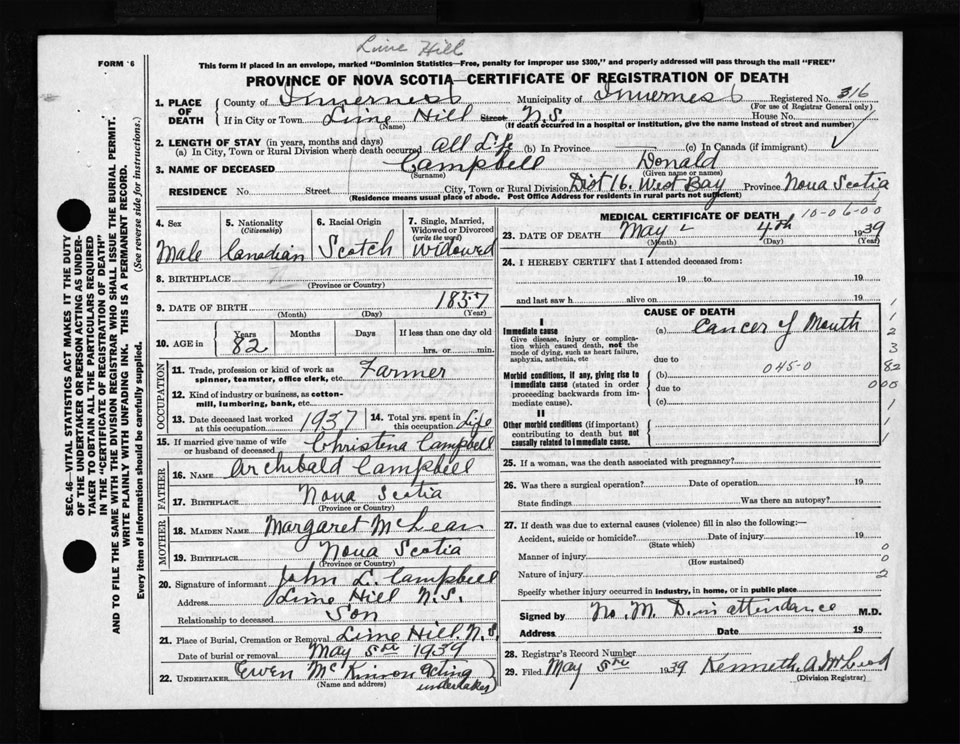 Lime Hill
FORM 6
This form if placed in an envelope, marked "Dominion Statistics—Free, penalty for improper use $300," and properly addressed will pass through the mail "FREE"
PROVINCE OF NOVA SCOTIA—CERTIFICATE OF REGISTRATION OF DEATH
1. PLACE OF DEATH
County of Inverness Municipality of Inverness Registered No. 316
(For use of Registrar General only)
If in City or Town Lime Hill Street N.S. House No.
(Name) (If death occurred in a hospital or institution, give the name instead of street and number)
2. LENGTH OF STAY (in years, months and days)
(a) In City, Town or Rural Division where death occurred All Life (b) In Province (c) In Canada (if immigrant)
3. NAME OF DECEASED Campbell Donald
(Surname) (Given name or names)
RESIDENCE No. Street City, Town or Rural Division Dist 16. West Bay Province Nova Scotia
(Residence means usual place of abode. Post Office Address for residents in rural parts not sufficient)
4. Sex
Male
5. Nationality
(Citizenship)
Canadian
6. Racial Origin
Scotch
7. Single, Married, Widowed or Divorced
(write the word)
Widowed
8. BIRTHPLACE
(Province or Country)
9. DATE OF BIRTH 1857
(Month) (Day) (Year)
10. AGE in
Years Months Days If less than one day old
82 hrs. or min.
OCCUPATION
11. Trade, profession or kind of work as spinner, teamster, office clerk, etc. Farmer
12. Kind of industry or business, as cotton-mill, lumbering, bank, etc.
13. Date deceased last worked at this occupation. 1937
14. Total yrs. spent in this occupation. Life
15. If married give name of wife or husband of deceased Christena Campbell
FATHER
16. NAME Archibald Campbell
17. BIRTHPLACE Nova Scotia
(Province or Country)
MOTHER
18. MAIDEN NAME Margaret McLean
19. BIRTHPLACE Nova Scotia
(Province or Country)
20. Signature of informant John L. Campbell
Address Lime Hill N.S.
Relationship to deceased Son
21. Place of Burial, Cremation or Removal Lime Hill. N.S.
Date of burial or removal May 5th 1939
22. UNDERTAKER Ewen McKinnon Acting undertaker
(Name and address)
MEDICAL CERTIFICATE OF DEATH 10-06-00
23. DATE OF DEATH May 4th 1939
(Month) (Day) (Year)
24. I HEREBY CERTIFY that I attended deceased from:
19 to 19
and last saw h alive on 19
CAUSE OF DEATH
I
Immediate cause (a) Cancer of Mouth
Give disease, injury or complication which caused death, not the mode of dying, such as heart failure, asphyxia, asthenia, etc
due to
Morbid conditions, if any, giving rise to immediate cause (stated in order proceeding backwards from immediate cause).
(b) 045-0
due to
(c)
II
Other morbid conditions (if important) contributing to death but not causally related to immediate cause.
1
2
3
82
000
1
1
1
25. If a woman, was the death associated with pregnancy?
26. Was there a surgical operation? Date of operation 19
State findings Was there an autopsy?
27. If death was due to external causes (violence) fill in also the following:—
Accident, suicide or homicide? Date of injury 19
(State which)
Manner of injury 0
(How sustained) 0
Nature of injury 2
Specify whether injury occurred in Industry, in home, or in public place
Signed by No. M. D. in attendance M.D.
Address Date 19
28. Registrar's Record Number
29. Filed May 5th 1939 Kenneth A McLeod
(Division Registrar)
SEC. 46—VITAL STATISTICS ACT MAKES IT THE DUTY
OF THE UNDERTAKER OR PERSON ACTING AS UNDER-
TAKER TO OBTAIN ALL THE PARTICULARS REQUIRED
IN THE "CERTIFICATE OF REGISTRATION OF DEATH"
AND TO FILE THE SAME WITH THE DIVISION REGISTRAR WHO SHALL ISSUE THE BURIAL PERMIT.
WRITE PLAINLY WITH UNFADING INK. THIS IS A PERMANENT RECORD.
Every item of information should be carefully supplied. (See reverse side for instructions.)